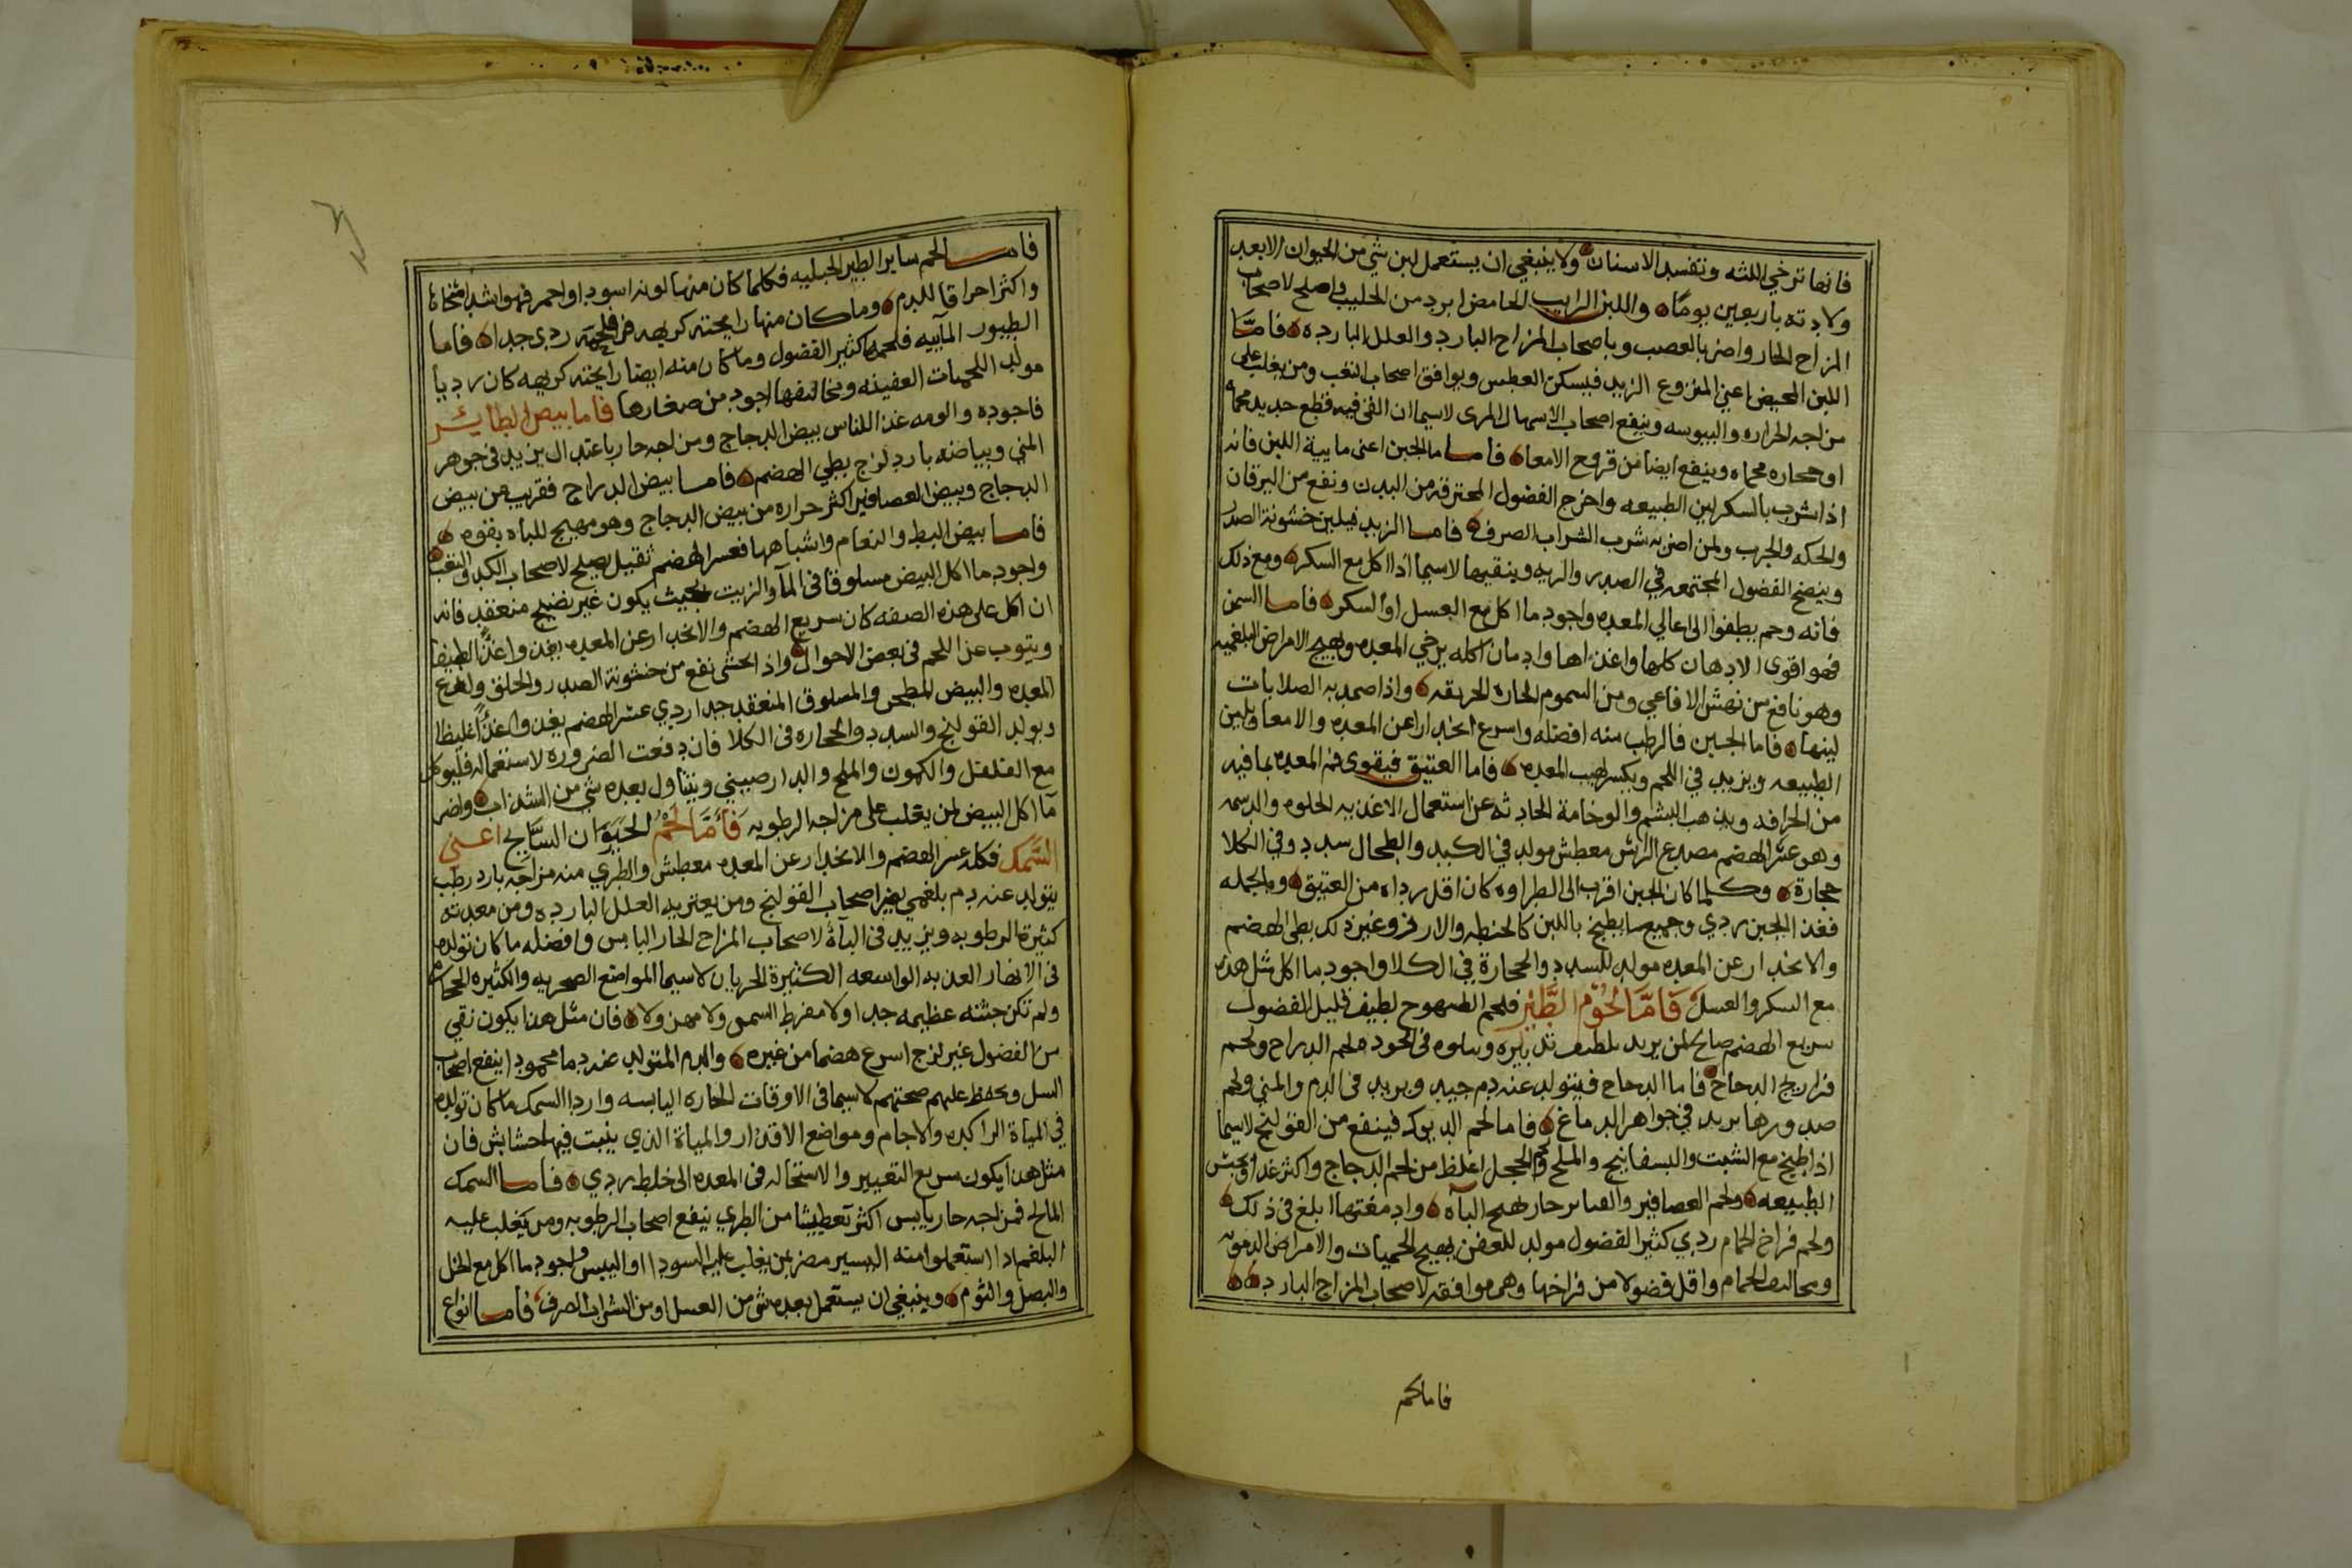 فانها ترخي اللثه وتفسد الاسنان ولا ينبغي ان يستعمل لبن شي من الحيوان الا بعد
ولادته باربعين يومًا واللبن الرايب الحامض ابرد من الحليب واصلح لاصحاب
المزاج الحار واضر بالعصب وباصحاب المزاج البارد والعلل البارده فامَّا
اللبن المخيض اعني المنزوع الزبد فيسكن العطس ويوافق اصحاب التعب ومن يغلب على
مزاجه الحراره واليبوسه وينفع اصحاب الاسهال المري لاسيما ان القى فيه قطع حديد محماه
او حجاره محماه وينفع ايضا من قروح الامعا فاما ما الجبن اعنى مايية اللبن فانه
اذا شرب بالسكر لين الطبيعه واخرج الفضول المحترقه من البدن ونفع من اليرقان
والحكه والجرب ولمن اضر به شرب الشراب الصرف فاما الزبد فيلين خشونة الصدر
وينضج الفضول المجتمعه في الصدر والريه وينقيها لاسيما اذا اكل مع السكر ومع ذلك
فانه وخم يطفوا الى اعالي المعده واجود ما اكل مع العسل او السكر فاما السمن
فهو اقوى الادهان كلها واغذاها وادمان اكله يرخي المعده ويهيج الامراض البلغميه
وهو نافع من نهش الافاعي ومن السموم الحاره الحريقه واذا ضمد به الصلابات
لينها فاما الجبن فالرطب منه افضله واسرع انحدارا عن المعده والامعا ويلين
الطبيعه ويزيد في اللحم ويكسر لهيب المعده فاما العتيق فيقوى فم المعده بما فيه
من الحرافه ويذهب البشم والوخامة الحادثه عن استعمال الاغذيه الحلوه والدسمه
وهو عسر الهضم مصدع الراس معطش مولد في الكبد والطحال سدد وفي الكلا
حجارة وكلما كان الجبن اقرب الى الطراوه كان اقل رداه من العتيق وبالجمله
فغذا الجبن ردي وجميع ما يطبخ باللبن كالحنطه والارز وغير ذلك بطى الهضم
والانحدار عن المعده مولد للسدد والحجارة في الكلا واجود ما اكل مثل هذه
مع السكر والعسل فَامَّا لحُوم الطَّيْر فلحم الطيهوج لطيف قليل الفضول
سريع الهضم صالح لمن يريد تلطيف تدبيره ويتلوه فى الجوده لحم الدراج ولحم
فراريج الدجاج فاما الدجاج فيتولد عنه دم جيد ويزيد فى الدم والمني ولحم
صدورها يزيد في جواهر الدماغ فاما لحم الديوك فينفع من القولنج لاسيما
اذا طبخ مع الشبت والبسفايج والملح ولحم الحجل اغلظ من لحم الدجاج واكثر غذا ويحبس
الطبيعه ولحم العصافير والقنابر حار يهيج الباه وادمغتها ابلغ في ذلك
ولحم فراخ الحمام ردي كثير الفضول مولد للعفن يهيج الحميات والامراض الدمويه
ومخاليف الحمام واقل فضولا من فراخها وهي موافقه لاصحاب المزاج البارد
فاما لحم
فاما لحم ساير الطير الجبليه فكلما كان منها لونه اسود او احمر فهو اشد اسخانا
واكثر احراقا للدم وما كان منها رايحته كريهه فلحمه ردي جدا فاما
الطيور المآييه فلحمها كثير الفضول وما كان منه ايضا رايحته كريهه كان رديا
مولد اللحميات العفينه ومخاليفها اجود من صغارها فاما بيض الطاير
فاجوده والومه غذا للناس بيض الدجاج ومزاجه حار باعتدال يزيد فى جوهر
المني وبياضه بارد لزج بطي الهضم فاما بيض الدراج فقريب من بيض
الدجاج وبيض العصافير اكثر حراره من بيض الدجاج وهو مهيج للباه بقوه
فاما بيض البط والنعام واشباهها فعسر الهضم ثقيل يصلح لاصحاب الكد والتعب
واجود ما اكل البيض مسلوقا فى الماَ والزيت بحيث يكون غير نضيج منعقد فانه
ان اكل على هذه الصفه كان سريع الهضم والانحدار عن المعده يغذوا غذًا لطيفا
وينوب عن اللحم فى بعض الاحوال واذا تحسى نفع من خشونة الصدر والحلق ولذع
المعده والبيض المطجن والمسلوق المنعقد جدا ردي عسر الهضم يغذوا غذًا غليظا
ويولد القولنج والسدد والحجاره فى الكلا فان دفعت الضروره لاستعماله فليوكل
مع الفلفل والكمون والملح والدارصيني ويتناول بعده شي من السذاب واضر
مآ اكل البيض لمن يغلب على مزاجه الرطوبه فَأَمَّا لَحْمُ الحَيَوَان السَّابح اعنى
السَّمك فكله عسر الهضم والانحدار عن المعده معطش والطري منه مزاجه بارد رطب
يتولد عنه دم بلغمي يضر اصحاب القولنج ومن يعتريه العلل البارده ومن معدته
كثيرة الرطوبه ويزيد فى الباة لاصحاب المزاج الحار اليابس وافضله ما كان تولده
فى الانهار العذبه الواسعه الكثيرة الجريان لاسيما المواضع الصخريه والكثيره الحجاره
ولم تكن جثته عظيمه جدا ولا مفرط السمن ولا مهزولا فان مثل هذا يكون نقي
من الفضول غير لزج اسرع هضما من غيره والدم المتولد عنه دما محمودا ينفع اصحاب
السل ويحفظ عليهم صحتهم لاسيما فى الاوقات الحاره اليابسه واردا السمك ما كان تولده
في المياة الراكده والاجام ومواضع الاقذار والمياة الذي ينبت فيها حشايش فان
مثل هذا يكون سريع التغيير والاستحاله فى المعده الى خلط ردي فاما السمك
المالح فمزاجه حار يابس اكثر تعطيشا من الطري ينفع اصحاب الرطوبه ومن يغلب عليه
البلغم اذا استعملوا منه اليسير مضر بمن يغلب عليه السودا او اليبس واجود ما اكل مع الخل
والبصل والثوم وينبغي ان يستعمل بعده شى من العسل او من الشراب الصرف فاما انواع